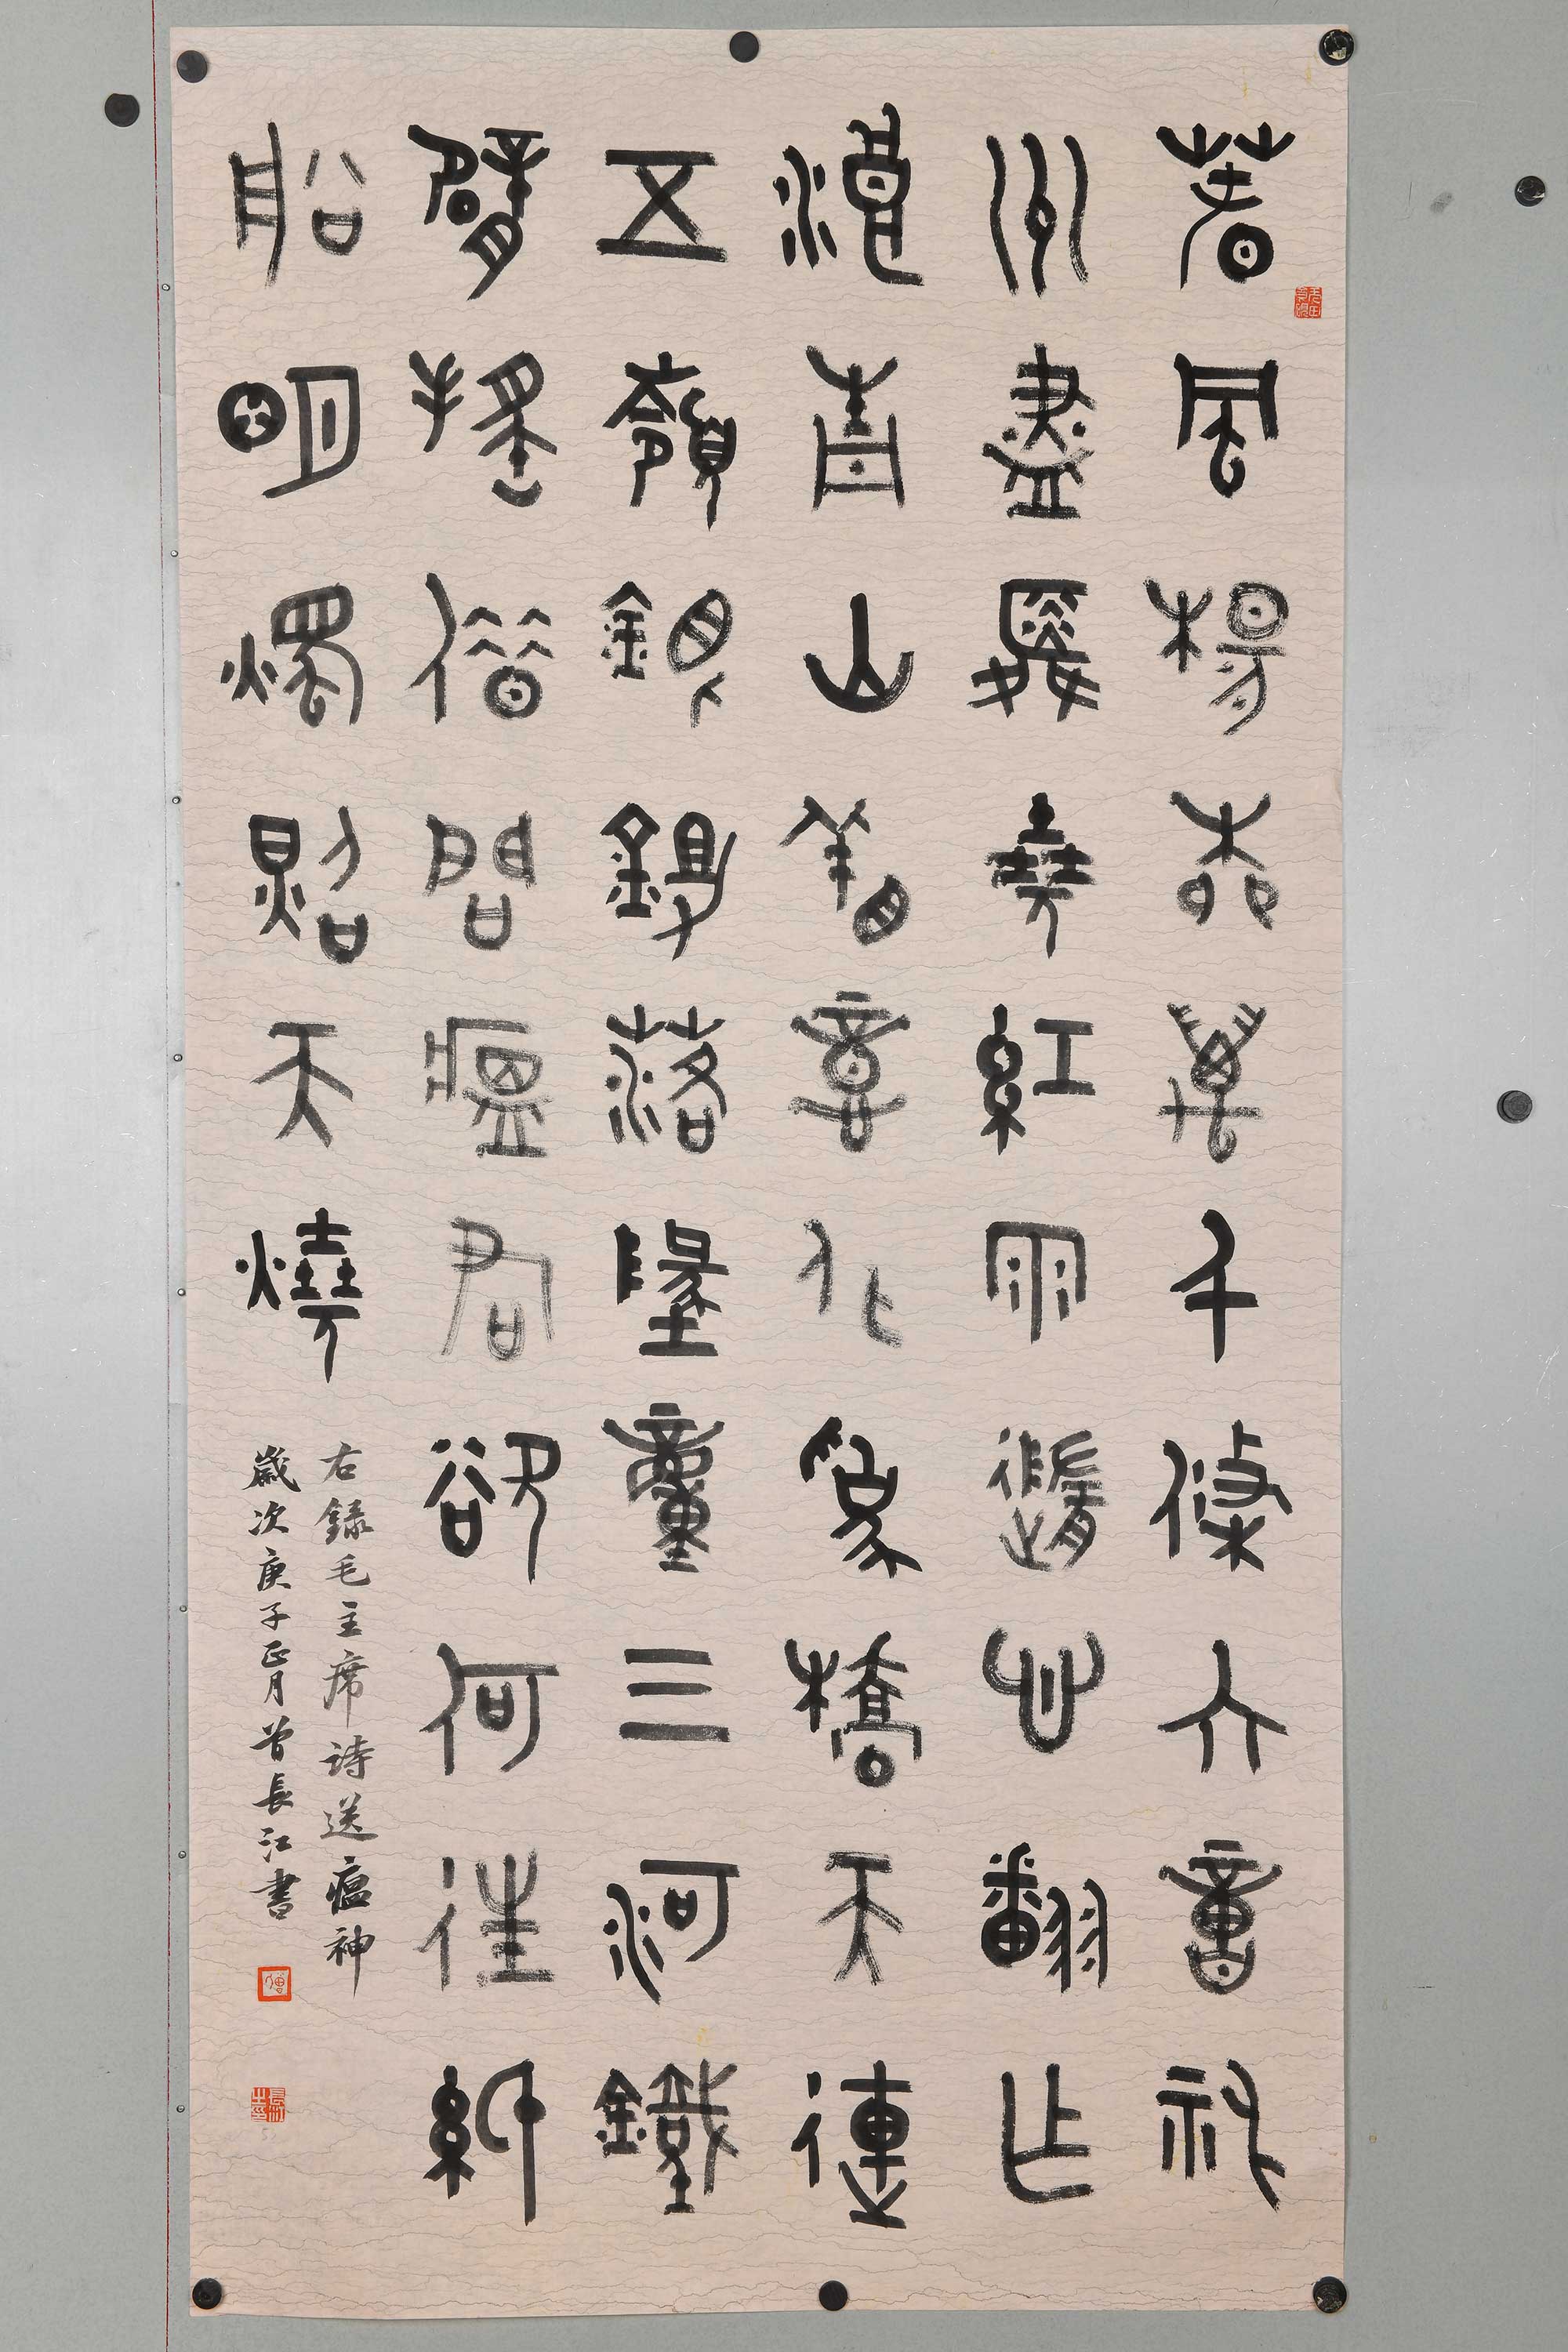 春風楊柳萬千條六億神
州盡舜堯紅雨隨心翻作
浪青山着意化為橋天連
五嶺銀鋤落地動三河鐵
臂搖借問瘟君欲何往紙
船明燭照天燒
右錄毛主席詩送瘟神
歲次庚子正月曾長江書